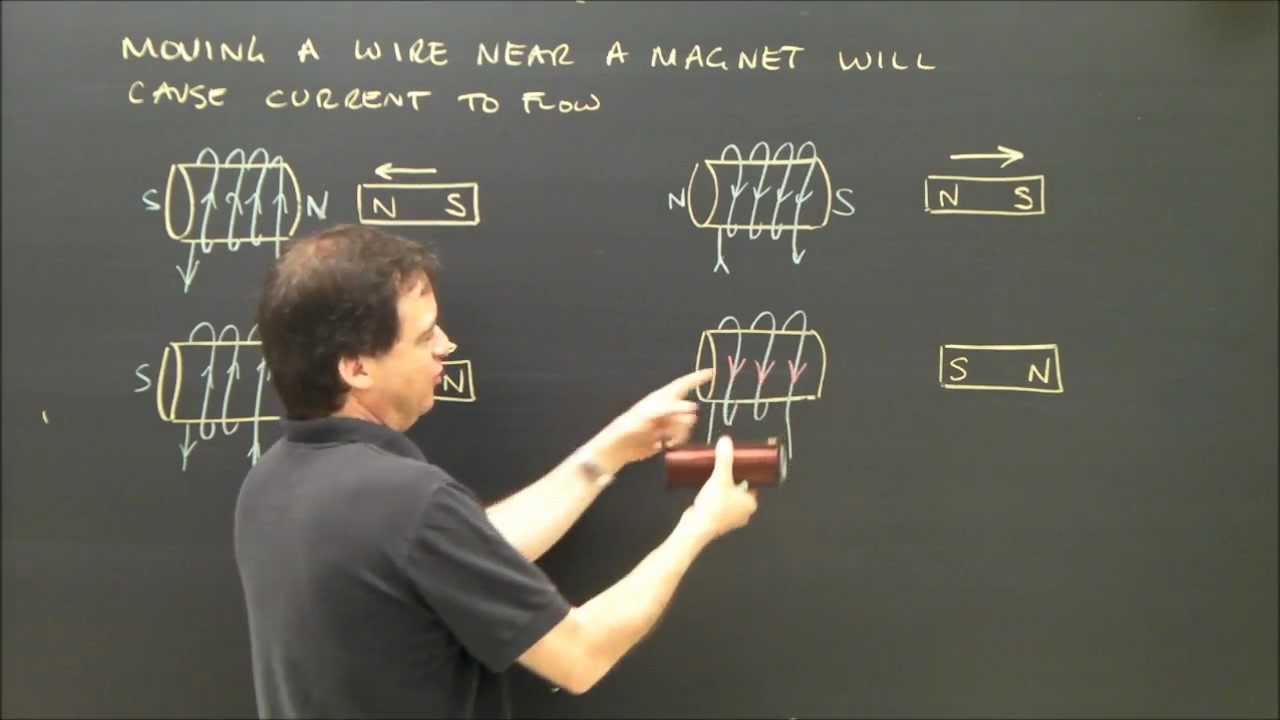 MOVING A WIRE NEAR A MAGNET WILL
CAUSE CURRENT TO FLOW
S N N S
N S N S
S N
S N